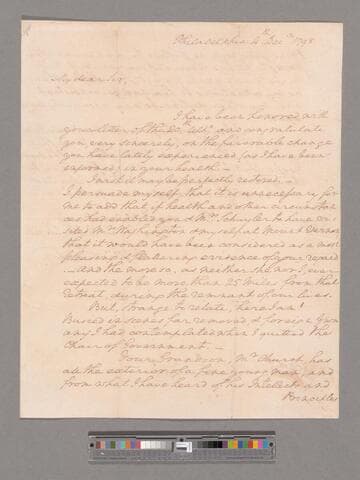 Philadelphia 4th Decr 1798
My dear Sir,
I have been honored with
your letter of the ulto and congratulate
you, very sincerely, on the favourable change
you have lately experienced (as I have been
informed) in your health.—
I wish it may be perfectly restored.—
I persuade myself, that it is unnecessary for
me to add that if health and other circumstan
ces had enabled you & Mrs Schuyler to have vi
sited Mrs Washington & myself at Mount Vernon
that it would have been considered as a most
pleasing & flattering evidence of your regard
—and the more so, as neither she nor I, ever
expected to be more than 25 miles from that
retreat, during the remnant of our lives.
But, strange to relate, here I am!
Busied in scenes far removed & foreign from
any I had contemplated when I quitted the
Chair of Government.—
Your Grandson, Mr Church, has
all the exterior of a fine young man, and
from what I have heard of his Intellects and
Principles